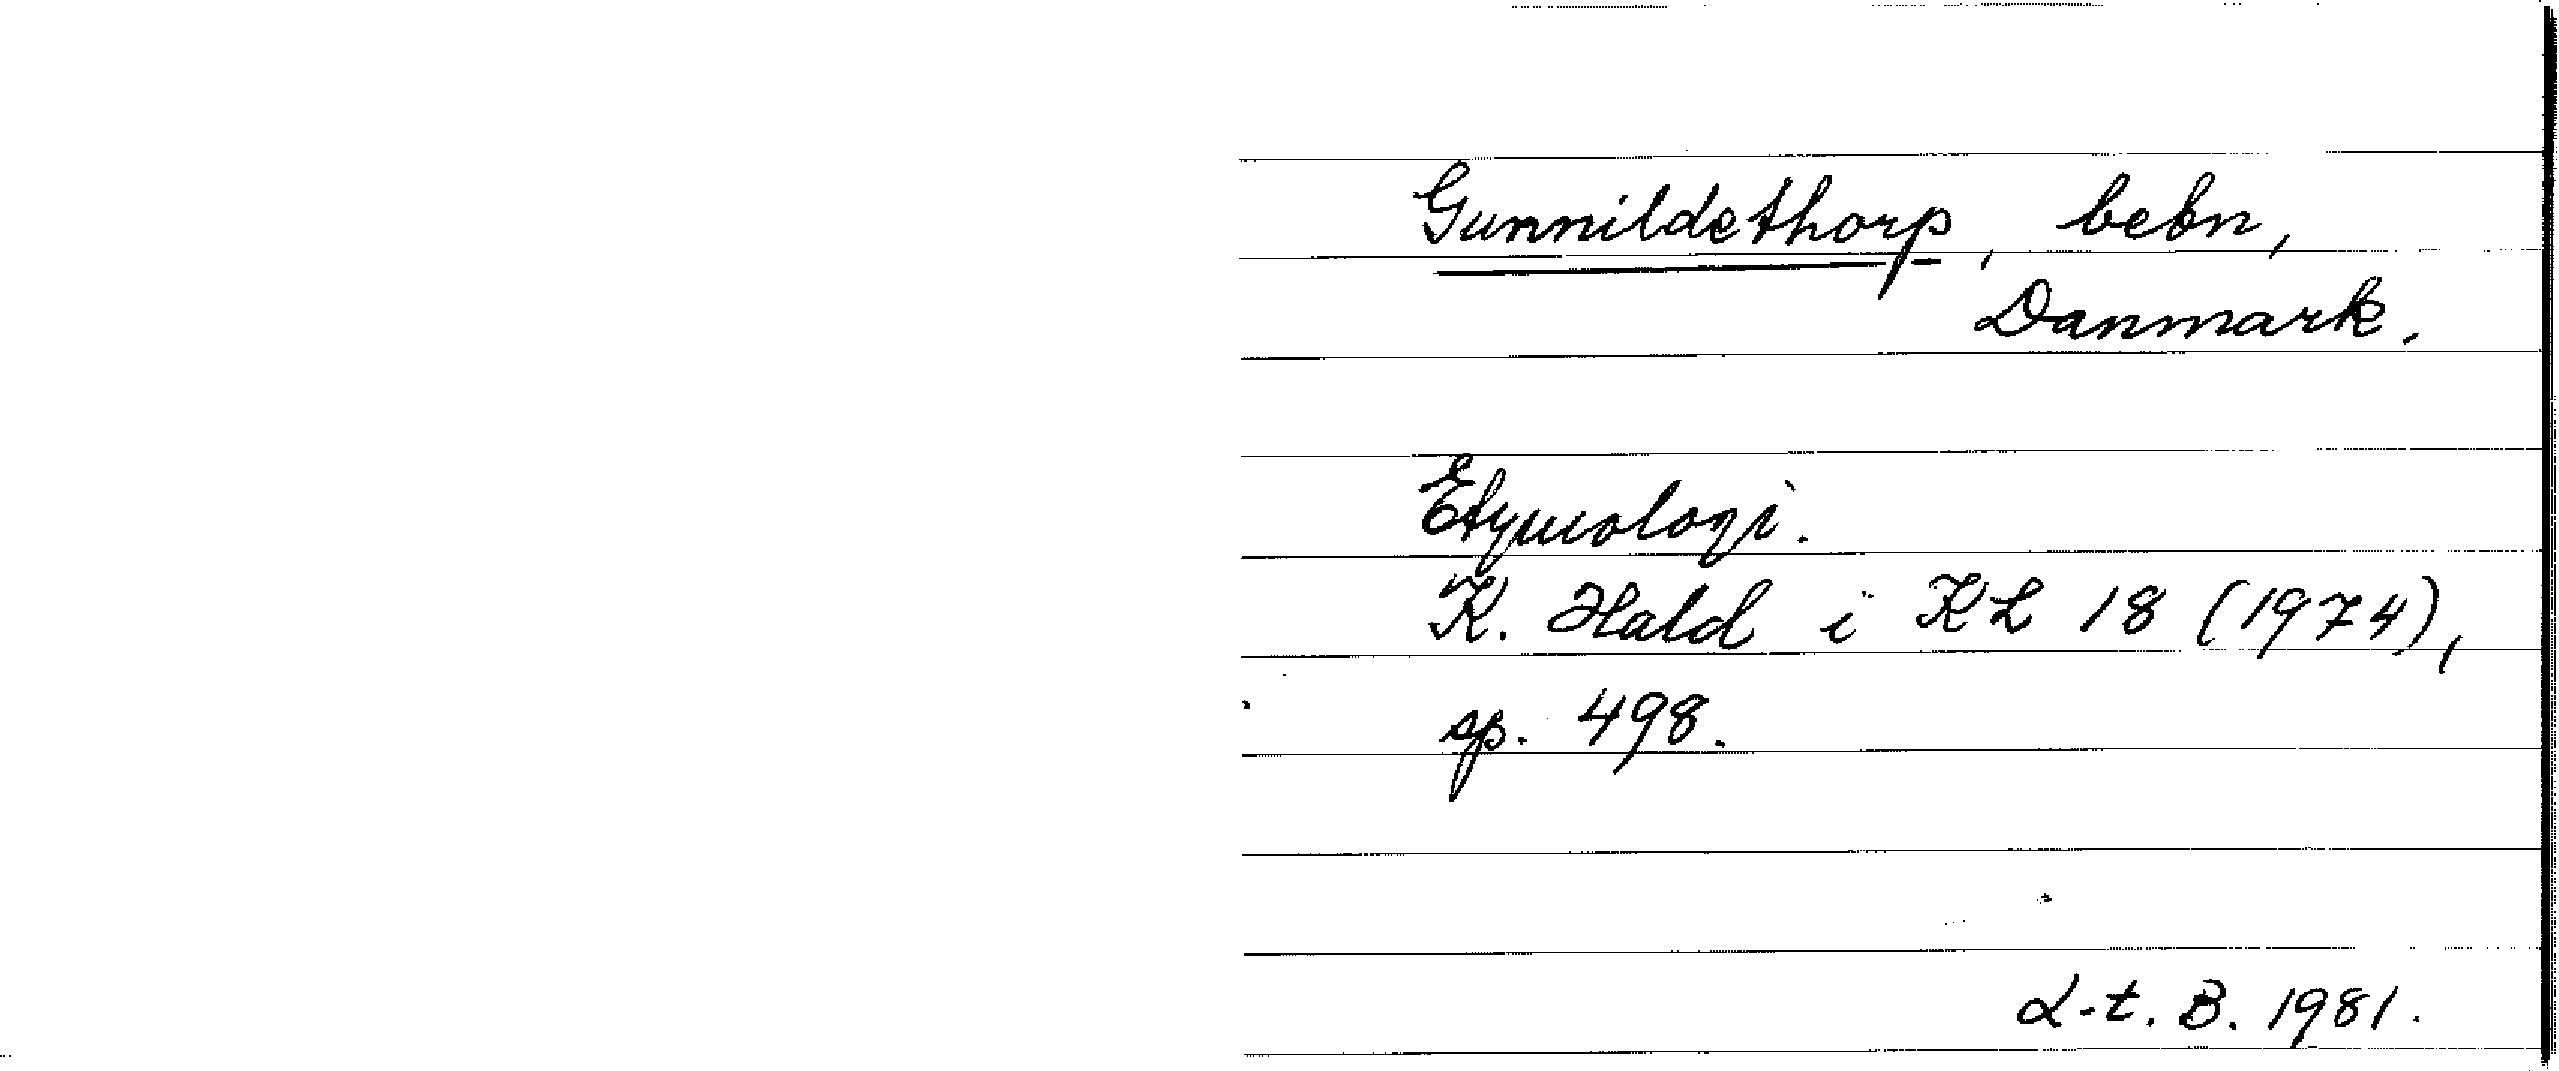 Gunnildethorp, bebn,
Danmark.
Etymologi.
K. Hald i KL 18 (1974),
sp. 498.
L-t. B. 1981.